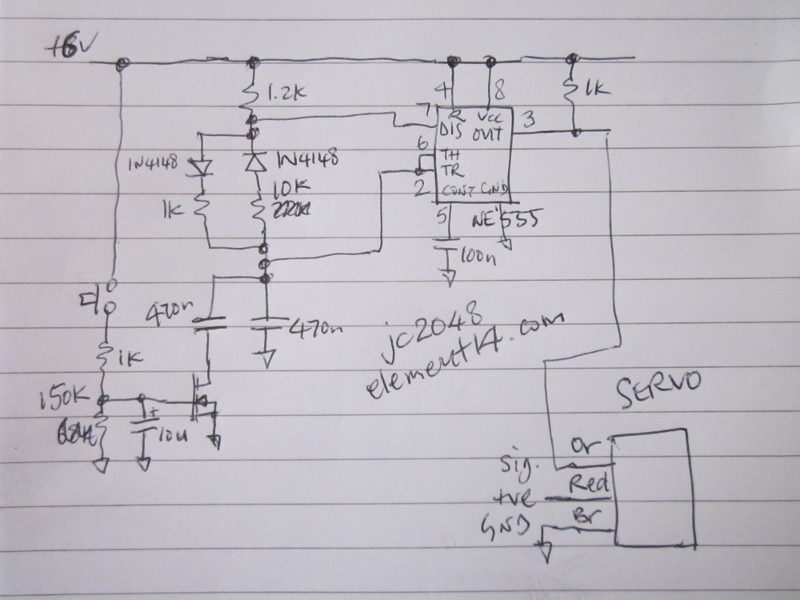 +6V
1.2K
4
8
1K
7
R
Vcc
3
DIS
OUT
6
1N4148
1N4148
TH
TR
10K
2
CONT GND
1K
220K
5
NE555
100n
470n
470n
jc2048
element14.com
1K
SERVO
150K
10u
sig.
Or
+ve
Red
GND
Br